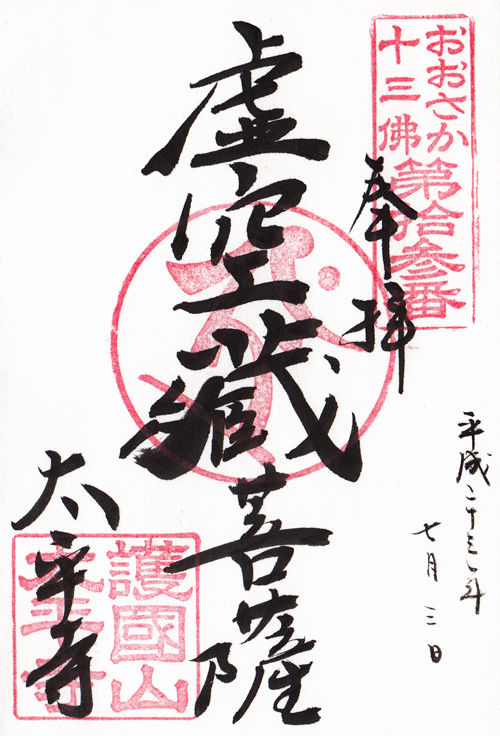 おおさか
十三佛
第拾参番
奉拝
虚空藏菩薩
平成二十三年
七月三日
太平寺
護國山
太平寺